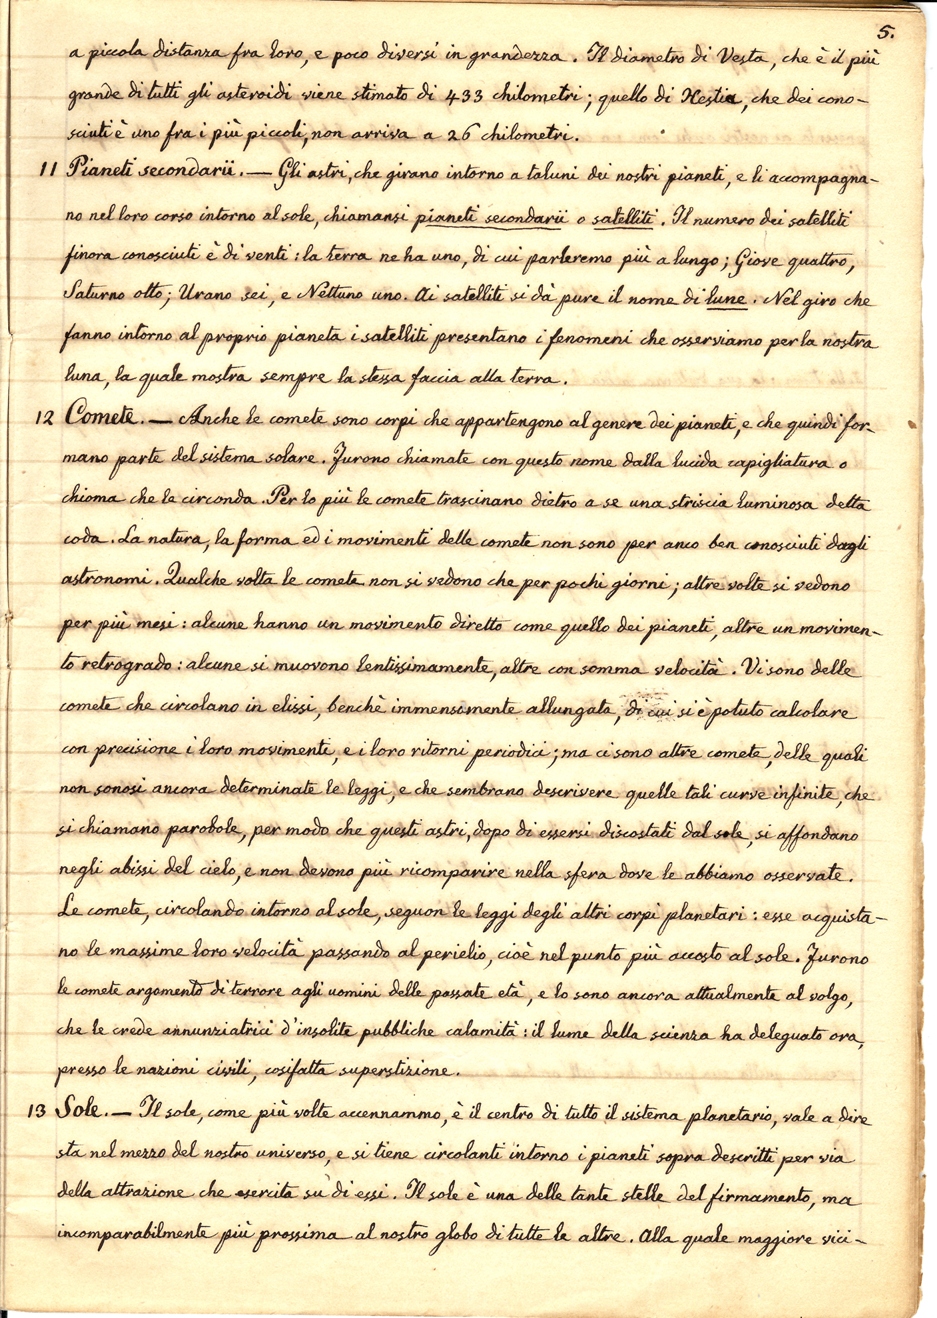 5.
a piccola distanza fra loro, e poco diversi in grandezza. Il diametro di Vesta, che è il più
grande di tutti gli asteroidi viene stimato di 433 chilometri; quello di Hestia, che dei cono-
sciuti è uno fra i più piccoli, non arriva a 26 chilometri.
11 Pianeti secondarii. — Gli astri, che girano intorno a taluni dei nostri pianeti, e li accompagna-
no nel loro corso intorno al sole, chiamansi pianeti secondarii o satelliti. Il numero dei satelliti
finora conosciuti è di venti: la terra ne ha uno, di cui parleremo più a lungo; Giove quattro,
Saturno otto; Urano sei, e Nettuno uno. Ai satelliti si dà pure il nome di lune. Nel giro che
fanno intorno al proprio pianeta i satelliti presentano i fenomeni che osserviamo per la nostra
luna, la quale mostra sempre la stessa faccia alla terra.
12 Comete. — Anche le comete sono corpi che appartengono al genere dei pianeti, e che quindi for-
mano parte del sistema solare. Furono chiamate con questo nome dalla lucida capigliatura o
chioma che le circonda. Per lo più le comete trascinano dietro a se una striscia luminosa detta
coda. La natura, la forma ed i movimenti delle comete non sono per anco ben conosciuti dagli
astronomi. Qualche volta le comete non si vedono che per pochi giorni; altre volte si vedono
per più mesi: alcune hanno un movimento diretto come quello dei pianeti, altre un movimen-
to retrogrado: alcune si muovono lentissimamente, altre con somma velocità. Vi sono delle
comete che circolano in elissi, benchè immensamente allungata, di cui si è potuto calcolare
con precisione i loro movimenti, e i loro ritorni periodici; ma ci sono altre comete, delle quali
non sonosi ancora determinate le leggi, e che sembrano descrivere quelle tali curve infinite, che
si chiamano parobole, per modo che questi astri, dopo di essersi discostati dal sole, si affondano
negli abissi del cielo, e non devono più ricomparire nella sfera dove le abbiamo osservate.
Le comete, circolando intorno al sole, seguon le leggi degli altri corpi planetari: esse acquista-
no le massime loro velocità passando al perielio, cioè nel punto più accosto al sole. Furono
le comete argomento di terrore agli uomini delle passate età, e lo sono ancora attualmente al volgo,
che le crede annunziatrici d'insolite pubbliche calamità: il lume della scienza ha deleguato ora,
presso le nazioni civili, cosifatta superstizione.
13 Sole. — Il sole, come più volte accennammo, è il centro di tutto il sistema planetario, vale a dire
sta nel mezzo del nostro universo, e si tiene circolanti intorno i pianeti sopra descritti per via
della attrazione che esercita su di essi. Il sole è una delle tante stelle del firmamento, ma
incomparabilmente più prossima al nostro globo di tutte le altre. Alla quale maggiore vici-